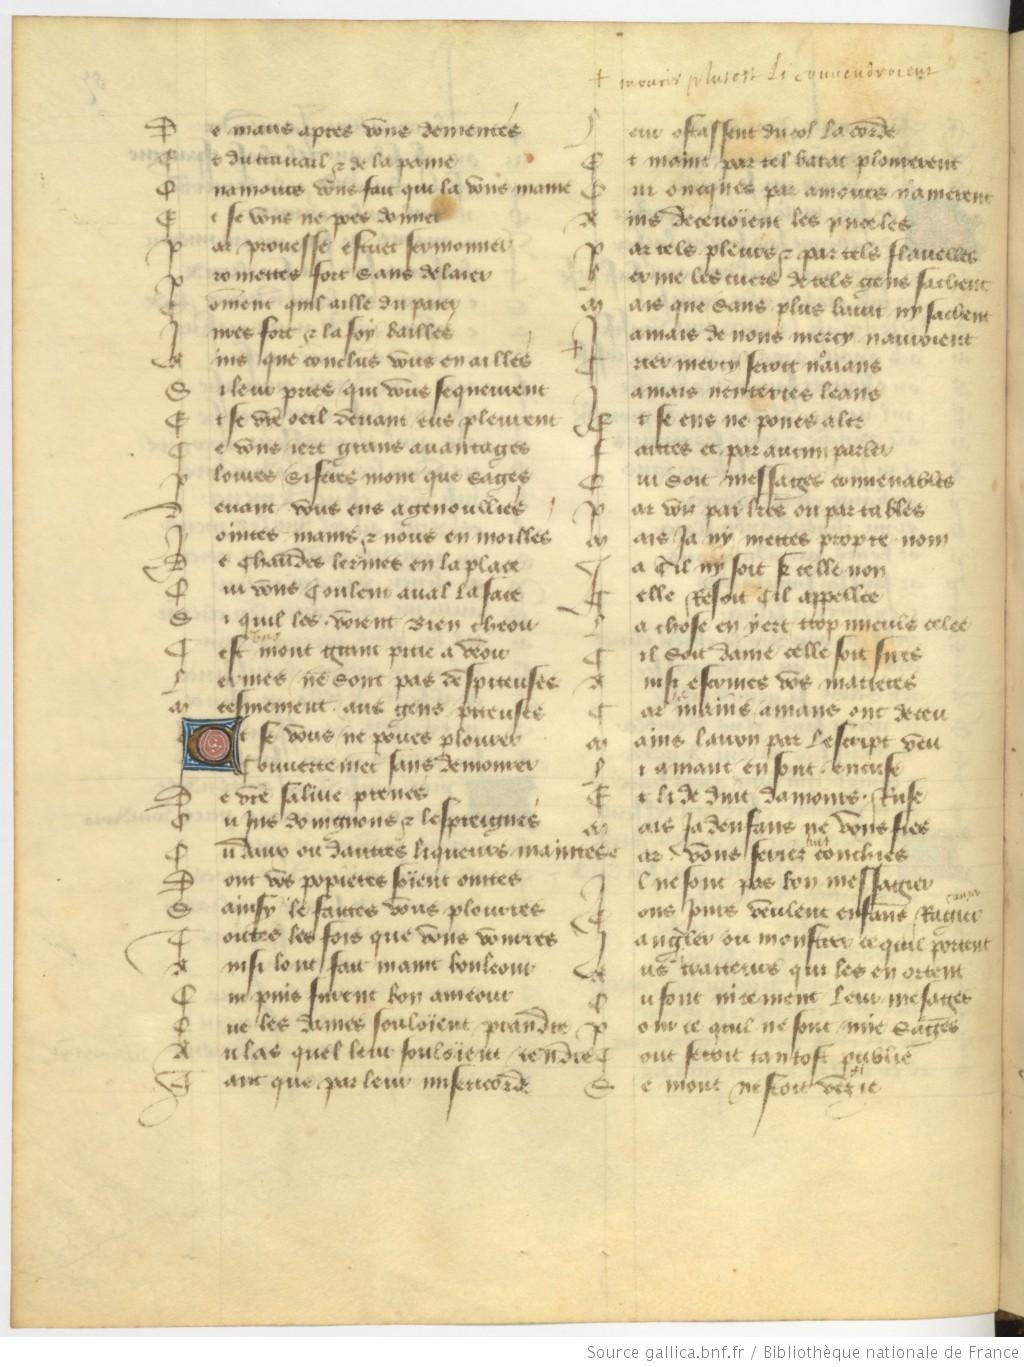 + mourir plutost li convendroient
De maus aptes vous dementes
Et du travail & de la paine
Quamours vous fait qui la vous maine
Et se vous ne poes donner
Par prouesse estuet sermonner
Prometes fort sans delaier
Coment quil aille du paier
Jures fort & la foy bailles
Ains que conclus vous en ailles
Si leur pries qui vous sequeurent
Et se vre oeil devant eus pleurent
Ce vous iert grans avantages
Ploures si feres mont que sages
Devant vous eus agenoullies
Jointes mains & nous en moilles
De chaudes lermes en la place
Qui vous coulent aval la face
Si quil les voient bien cheoir
Cest mont grant pitie a veoir
Lermes ne sont pas despiteuses
Mesmement aus gens piteuses
Et se vous ne poves plourer
Couvertemet sans demourer
De vre salive prenes
Ou jus doingnons & lespreignes
Ou daux ou dautres liqueurs maintes
Dont vos popietes soient ointes
Sainsy le faites vous ploures
Toutes les fois que vous voudres
Ainsi lont fait maint bouleour
Qui puis furent bon ameour
Que les dames souloient prandre
Au las quel leur souloient tendre
Tant que par leur misericorde
Leur ostassent du col la corde
Et maint par tel barat plourerent
Qui oncques par amours namerent
Ains decevoient les puceles
Par tels pleurs & par tels flavelles
Lerme les cuers de tels gens sachent
Mais que sans plus barat ny sachent
Jamais de nous mercy nauroient
+ Crier mercy seroit noians
Jamais nenteries leans
Et se eus ne poues aler
Faites et par aucun parler
Qui soit messages convenables
Par voix par lres ou par tables
Mais ja ny mettes propre nom
Ja cil ny soit se celle non
Celle resoit cil appellee
La chose en yert trop mieuls celee
Cil soit dame celle soit sires
Ainsi escrives vos matieres
Car mains amans ont deceu
Mains lairon par lescript veu
Li amant en sont encuse
Et li dednit damours ruse
Mais ja denfans ne vous fies
Car vous series conchies
Il ne sont pas bon messagier
Tous jours veulent enfans ragier
Jangler ou monstrer ce quil portent
Aus traiteurs qui les en ortent
Ou font nicement leur mesages
Pour ce quil ne sont mie sages
Tout seroit tantost publie
Se mont nestoit vezie
Source gallica.bnf.fr / Bibliothèque nationale de France